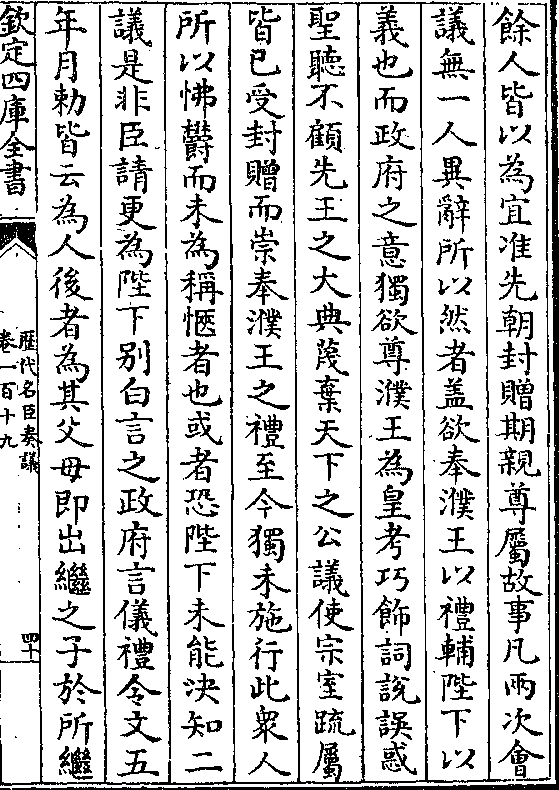 餘人皆以為宜准先朝封贈期親尊屬故事凡兩次會
議無一人異辭所以然者盖欲奉濮王以禮輔陛下以
義也而政府之意獨欲尊濮王為皇考巧飾詞說誤惑
聖聽不顧先王之大典蔑棄天下之公議使宗室疏屬
皆已受封贈而崇奉濮王之禮至今獨未施行此衆人
所以怫鬱而未為稱愜者也或者恐陛下未能決知二
議是非臣請更為陛下别白言之政府言儀禮令文五
年月勅皆云為人後者為其父母即出繼之子於所繼
欽定四庫全書
歴代名臣奏議
卷一百十九
四十